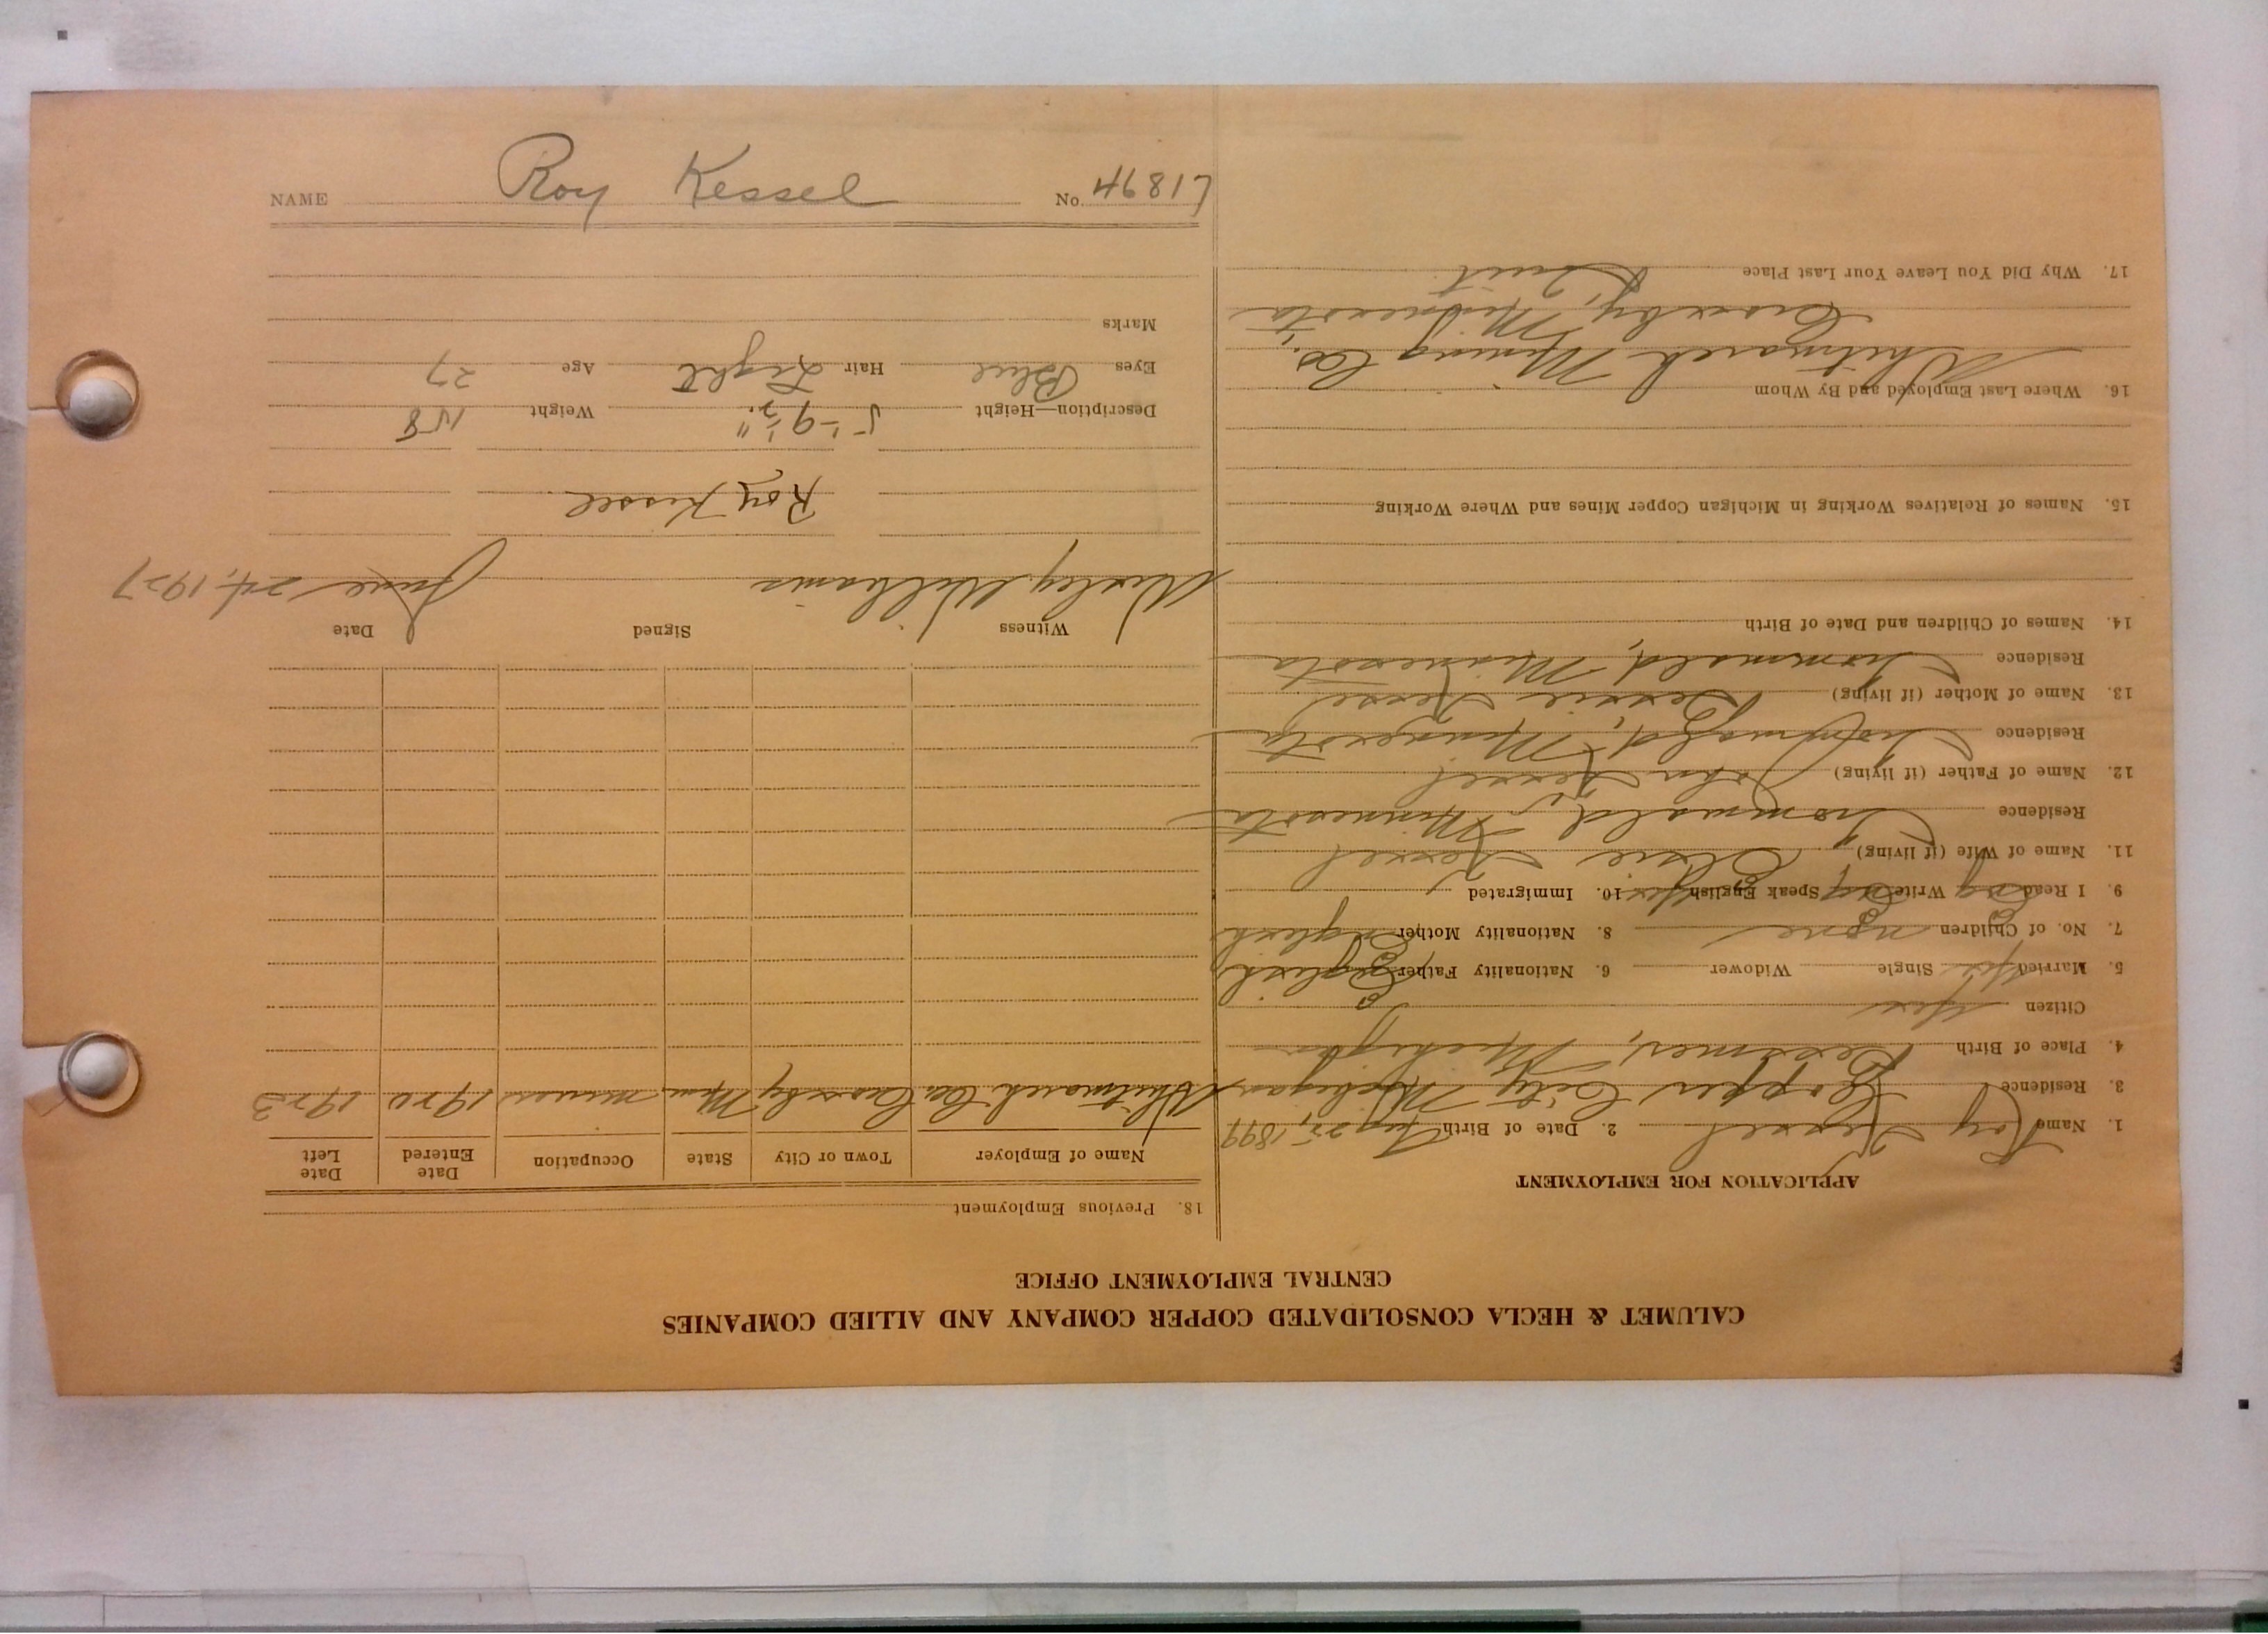 NAME Roy Kessel No. L1894
CALUMET & HECLA CONSOLIDATED COPPER COMPANY AND ALLIED COMPANIES
CENTRAL EMPLOYMENT OFFICE
APPLICATION FOR EMPLOYMENT
1. Name Roy Kessel 2. Date of Birth Aug 25, 1899
3. Residence Copper City Michigan
4. Place of Birth Bessemer, Michigan
Citizen Yes
5. Married Yes Single Widower 6. Nationality Father English
7. No. of Children none 8. Nationality Mother English
9. I Read Eng Write Eng Speak English Yes 10. Immigrated
11. Name of Wife (if living) Elsie Kessel
Residence Trommald, Minnesota
12. Name of Father (if living) John Kessel
Residence Trommald, Minnesota
13. Name of Mother (if living) Bessie Kessel
Residence Trommald, Minnesota
14. Names of Children and Date of Birth
15. Names of Relatives Working in Michigan Copper Mines and Where Working
16. Where Last Employed and By Whom
Whitmarsh Mining Co.,
Crosby, Minnesota
17. Why Did You Leave Your Last Place Quit
18. Previous Employment
Name of Employer Town or City State Occupation Date Entered Date Left
Whitmarsh Co. Crosby Minn miner 1920 1923
Witness Signed Date
Wesley Williams June 24, 1927
Roy Kessel
Description—Height 5'-9½" Weight 158
Eyes Blue Hair Light Age 27
Marks